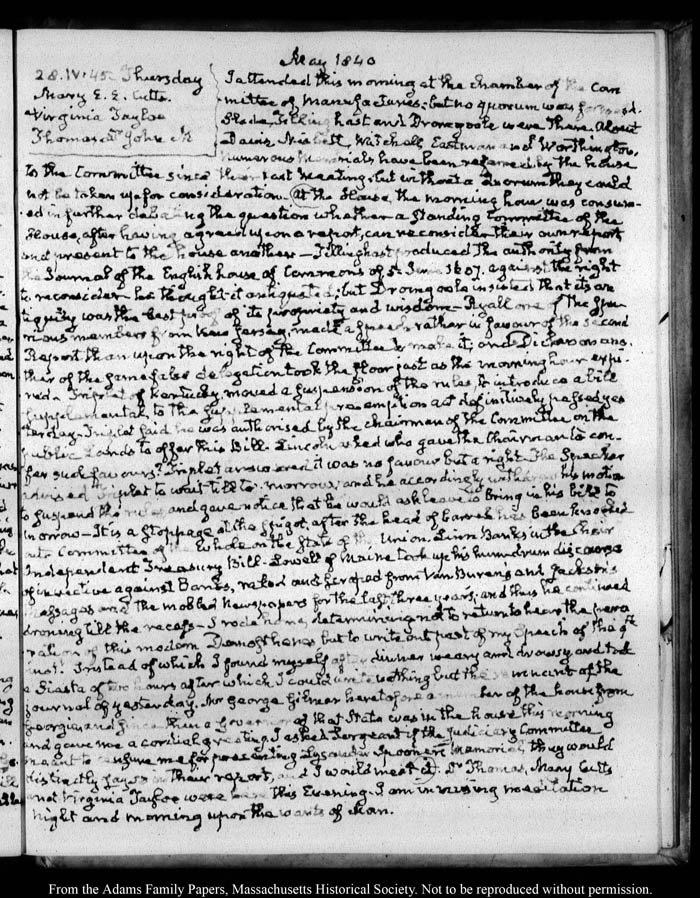 May 1840
28. IV:45. Thursday
Mary E. E. Cutts.
Virginia Tayloe
Thomas Dr John M
I attended this morning at the Chamber of the Com
mittee of Manufactures; but no quorum was formed.
Slade, Tillinghast and Dromgoole were there. Absent
Davis, Nisbett, Mitchell, Eastman and Worthington,
numerous Memorials have been referred by the house
to the Committee since their last meeting, but without a Quorum they could
not be taken up for consideration. At the House, the morning hour was consum-
ed in further debating the question whether a Standing Committee of the
House, after having agreed upon a report, can reconsider their own report
and present to the house another — Tillinghast produced the authority from
the Journal of the English house of Commons of 5. June 1607. against the right
to reconsider he thought it antiquated; but Dromgoole insisted that its an
tiquity was the best proof of its propriety and wisdom — Ryall one of the spu-
rious members from New Jersey, made a speech rather in favour of the second
Report than upon the right of the Committee to make it; and Dickerson ano-
ther of the same false delegation took the floor just as the morning hour expi-
red. Triplet of Kentucky moved a suspension of the rules, to introduce a bill
supplemental to the supplemental pre-emption act definitively passed yes
terday. Triplet said he was authorised by the Chairman of the Committee on the
public Lands to offer this Bill. Lincoln asked who gave the Chairman to con-
fer such favours? Triplet answered it was no favour but a right. The Speaker
advised Triplet to wait till to-morrow, and he accordingly withdrew his motion
to suspend the rules and gave notice that he would ask leave to bring in his bill to
morrow — It is a stoppage at the spigot, after the head of the barrel has been knocked
out. Committee of the whole on the state of the Union. Linn Banks in the Chair
Independent Treasury Bill. Lowell of Maine took up his humdrum discourse
of invective against Banks, raked and scraped from Van Buren's and Jackson's
Messages and the mobbed Newspapers for the last three years; and thus he continued
droning till the recess — I rode home, determining not to return to hear the pero
ration of this modern Demosthenes but to write out part of my Speech of the 9th
inst. Instead of which I found myself after dinner weary and drowsy and took
a Siesta of two hours after which I could write nothing but the remnant of the
journal of yesterday. Mr George Gilmer heretofore a member of the house from
Georgia, and since then a Governor of that State was in the house this morning
and gave me a cordial greeting. I asked Sergeant if the Judiciary Committee
meant to censure me for presenting Lysander Spooner's Memorial, they would
distinctly say so in their report, and I would meet it. Dr Thomas, Mary Cutts
and Virginia Tayloe were here this Evening. I am in musing meditation
night and morning upon the wants of Man.
From the Adams Family Papers, Massachusetts Historical Society. Not to be reproduced without permission.